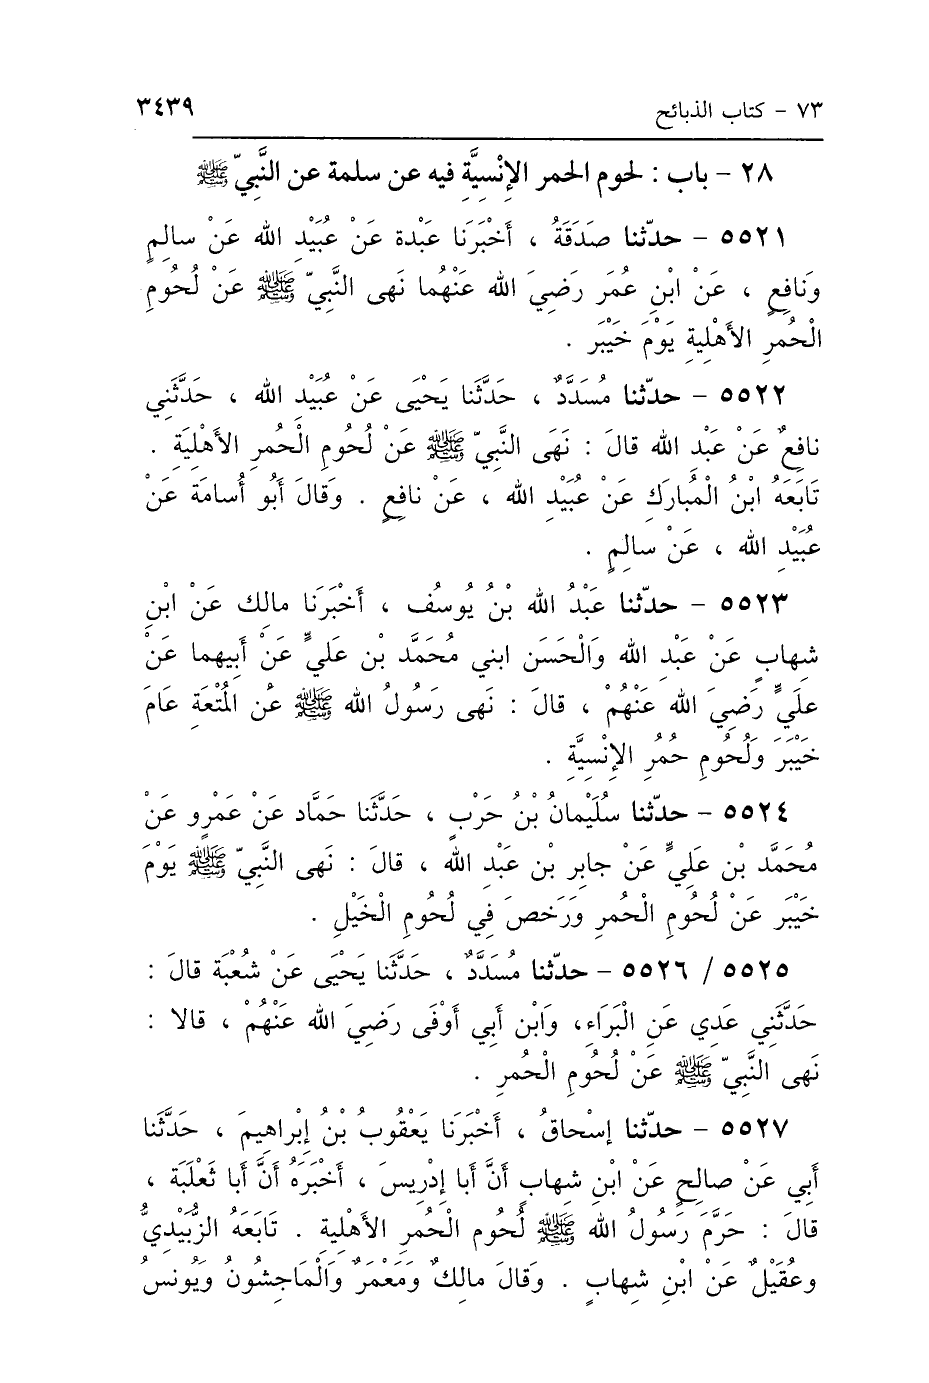 ٧٣ - كتاب الذبائح ٣٤٣٩
٢٨ - باب : لحوم الحمر الإنْسِيَّةِ فيه عن سلمة عن النَّبيّ ﷺ
٥٥٢١ - حدّثنا صَدَقَةُ ، أَخْبَرَنَا عَبْدة عَنْ عُبَيْدِ الله عَنْ سالِمٍ
وَنافِعٍ ، عَنْ ابْنِ عُمَر رَضِيَ الله عَنْهُما نَهى النَّبيّ ﷺ عَنْ لُحُومِ
الْحُمرِ الأَهْلِيةِ يَوْمَ خَيْبَر .
٥٥٢٢ - حدّثنا مُسَدَّدٌ ، حَدَّثَنا يَحْيَى عَنْ عُبَيْدِ الله ، حَدَّثَنِي
نافِعٌ عَنْ عَبْدِ الله قالَ : نَهَى النَّبِيّ ﷺ عَنْ لُحُومِ الْحُمرِ الأَهْلِيَةِ .
تَابَعَهُ ابْنُ الْمُبارَكِ عَنْ عُبَيْدِ الله ، عَنْ نافِعٍ . وَقالَ أَبُو أُسامَة عَنْ
عُبَيْدِ الله ، عَنْ سالِمٍ .
٥٥٢٣ - حدّثنا عَبْدُ الله بْنُ يُوسُف ، أَخْبَرَنَا مالِك عَنْ ابْنِ
شِهابٍ عَنْ عَبْدِ الله وَالْحَسَن ابني مُحَمَّد بْنِ عَليٍّ عَنْ أَبِيهما عَنْ
عَلَيٍّ رَضِيَ الله عَنْهُمْ ، قالَ : نَهى رَسُولُ الله ﷺ عَن الْمُتْعَةِ عَامَ
خَيْبَرَ وَلُحُومِ حُمُرِ الإنْسِيَّةِ .
٥٥٢٤ - حدّثنا سُلَيْمانُ بْنُ حَرْبٍ ، حَدَّثَنا حَمَّاد عَنْ عَمْرٍو عَنْ
مُحَمَّد بْنِ عَلِيٍّ عَنْ جابِرِ بْنِ عَبْدِ الله ، قالَ : نَهى النَّبِيّ ﷺ يَوْمَ
خَيْبَر عَنْ لُحُومِ الْحُمرِ وَرَخصَ فِي لُحُومِ الْخَيْلِ .
٥٥٢٥ / ٥٥٢٦ - حدّثنا مُسَدَّدٌ ، حَدَّثَنا يَحْيَى عَنْ شُعْبَة قالَ :
حَدَّثَنِي عَدِي عَنِ الْبَرَاءِ، وَابْن أَبي أَوْفَى رَضِيَ الله عَنْهُمْ ، قالا :
نَهى النَّبِيّ ﷺ عَنْ لُحُومِ الْحُمرِ .
٥٥٢٧ - حدّثنا إسْحاقُ ، أَخْبَرَنَا يَعْقُوبُ بْنُ إبْراهِيمَ ، حَدَّثَنا
أَبِي عَنْ صالِحٍ عَنْ ابْنِ شِهابٍ أَنَّ أَبا إدْرِيسَ ، أَخْبَرَهُ أَنَّ أَبا ثَعْلَبَة ،
قالَ : حَرَّمَ رَسُولُ الله ﷺ لُحُوم الْحُمرِ الأَهْلِيةِ . تَابَعَهُ الزُّبَيْدِيُّ
وعُقَيْلٌ عَنْ ابْنِ شِهابٍ . وَقالَ مالِكٌ وَمَعْمَرٌ وَالْمَاجِشُونُ وَيُونسُ